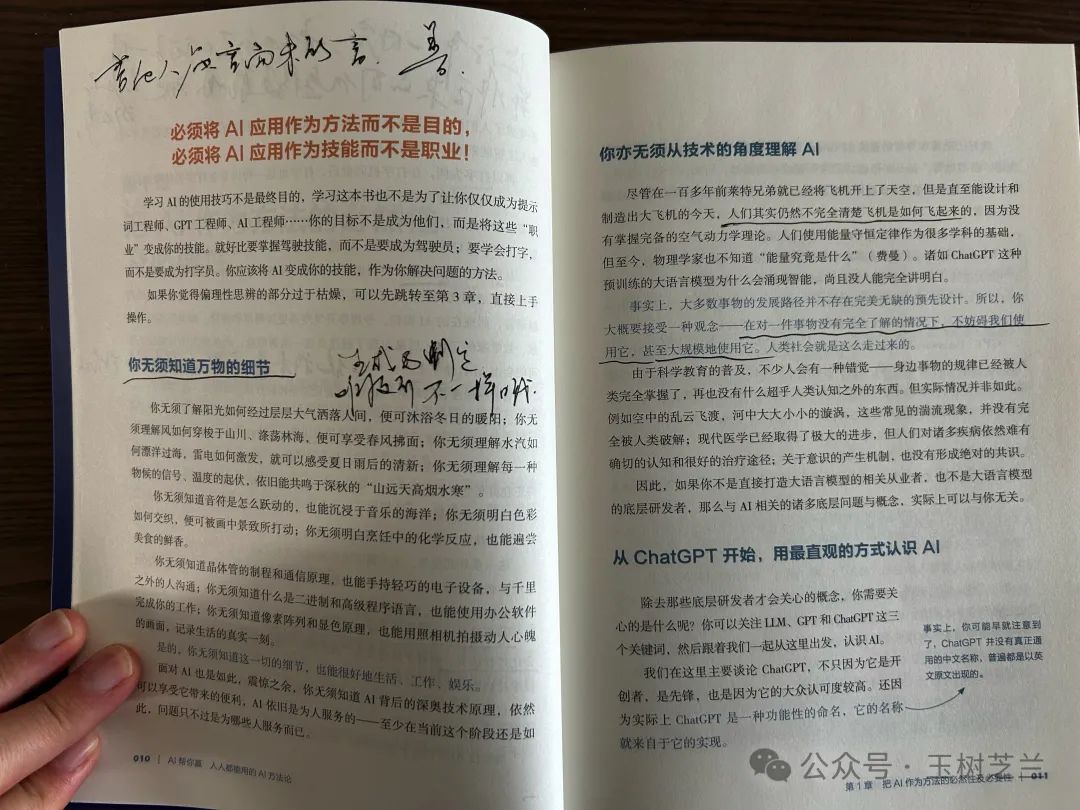 必须将 AI 应用作为方法而不是目的，
必须将 AI 应用作为技能而不是职业！
学习 AI 的使用技巧不是最终目的，学习这本书也不是为了让你仅仅成为提示
词工程师、GPT 工程师、AI 工程师……你的目标不是成为他们，而是将这些“职
业”变成你的技能。就好比要掌握驾驶技能，而不是要成为驾驶员；要学会打字，
而不是要成为打字员。你应该将 AI 变成你的技能，作为你解决问题的方法。
如果你觉得偏理性思辨的部分过于枯燥，可以先跳转至第 3 章，直接上手
操作。
你无须知道万物的细节
不一样
你无须了解阳光如何经过层层大气洒落人间，便可沐浴冬日的暖阳；你无
须理解风如何穿梭于山川、涤荡林海，便可享受春风拂面；你无须理解水汽如
何漂洋过海，雷电如何激发，就可以感受夏日雨后的清新；你无须理解每一种
物候的信号、温度的起伏，依旧能共鸣于深秋的“山远天高烟水寒”。
你无须知道音符是怎么跃动的，也能沉浸于音乐的海洋；你无须明白色彩
如何交织，便可被画中景致所打动；你无须明白烹饪中的化学反应，也能遍尝
美食的鲜香。
你无须知道晶体管的制程和通信原理，也能手持轻巧的电子设备，与千里
之外的人沟通；你无须知道什么是二进制和高级程序语言，也能使用办公软件
完成你的工作；你无须知道像素阵列和显色原理，也能用照相机拍摄动人心魄
的画面，记录生活的真实一刻。
是的，你无须知道这一切的细节，也能很好地生活、工作、娱乐。
面对 AI 也是如此，震惊之余，你无须知道 AI 背后的深奥技术原理，依然
可以享受它带来的便利，AI 依旧是为人服务的——至少在当前这个阶段还是如
此，问题只不过是为哪些人服务而已。
010 | AI 帮你赢 人人都能用的 AI 方法论
你亦无须从技术的角度理解 AI
尽管在一百多年前莱特兄弟就已经将飞机开上了天空，但是直至能设计和
制造出大飞机的今天，人们其实仍然不完全清楚飞机是如何飞起来的，因为没
有掌握完备的空气动力学理论。人们使用能量守恒定律作为很多学科的基础，
但至今，物理学家也不知道“能量究竟是什么”（费曼）。诸如 ChatGPT 这种
预训练的大语言模型为什么会涌现智能，尚且没人能完全讲明白。
事实上，大多数事物的发展路径并不存在完美无缺的预先设计。所以，你
大概要接受一种观念——在对一件事物没有完全了解的情况下，不妨碍我们使
用它，甚至大规模地使用它。人类社会就是这么走过来的。
由于科学教育的普及，不少人会有一种错觉——身边事物的规律已经被人
类完全掌握了，再也没有什么超乎人类认知之外的东西。但实际情况并非如此。
例如空中的乱云飞渡，河中大大小小的漩涡，这些常见的湍流现象，并没有完
全被人类破解；现代医学已经取得了极大的进步，但人们对诸多疾病依然难有
确切的认知和很好的治疗途径；关于意识的产生机制，也没有形成绝对的共识。
因此，如果你不是直接打造大语言模型的相关从业者，也不是大语言模型
的底层研发者，那么与 AI 相关的诸多底层问题与概念，实际上可以与你无关。
从 ChatGPT 开始，用最直观的方式认识 AI
除去那些底层研发者才会关心的概念，你需要关
心的是什么呢？你可以关注 LLM、GPT 和 ChatGPT 这三
个关键词，然后跟着我们一起从这里出发，认识 AI。
我们在这里主要谈论 ChatGPT，不只因为它是开
创者，是先锋，也是因为它的大众认可度较高。还因
为实际上 ChatGPT 是一种功能性的命名，它的名称
就来自于它的实现。
事实上，你可能早就注意到
了，ChatGPT 并没有真正通
用的中文名称，普遍都是以英
文原文出现的。
第 1 章 把 AI 作为方法的必然性及必要性 011
公众号·玉树芝兰